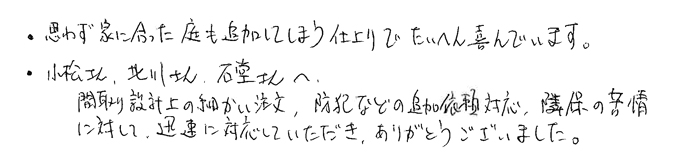 ・思わず家に合った庭も追加してしまう仕上りでたいへん喜んでいます。
・小松さん、北川さん、石堂さんへ、
間取り設計上の細かい注文、防犯などの追加依頼対応、隣保の苦情
に対して、迅速に対応していただき、ありがとうございました。